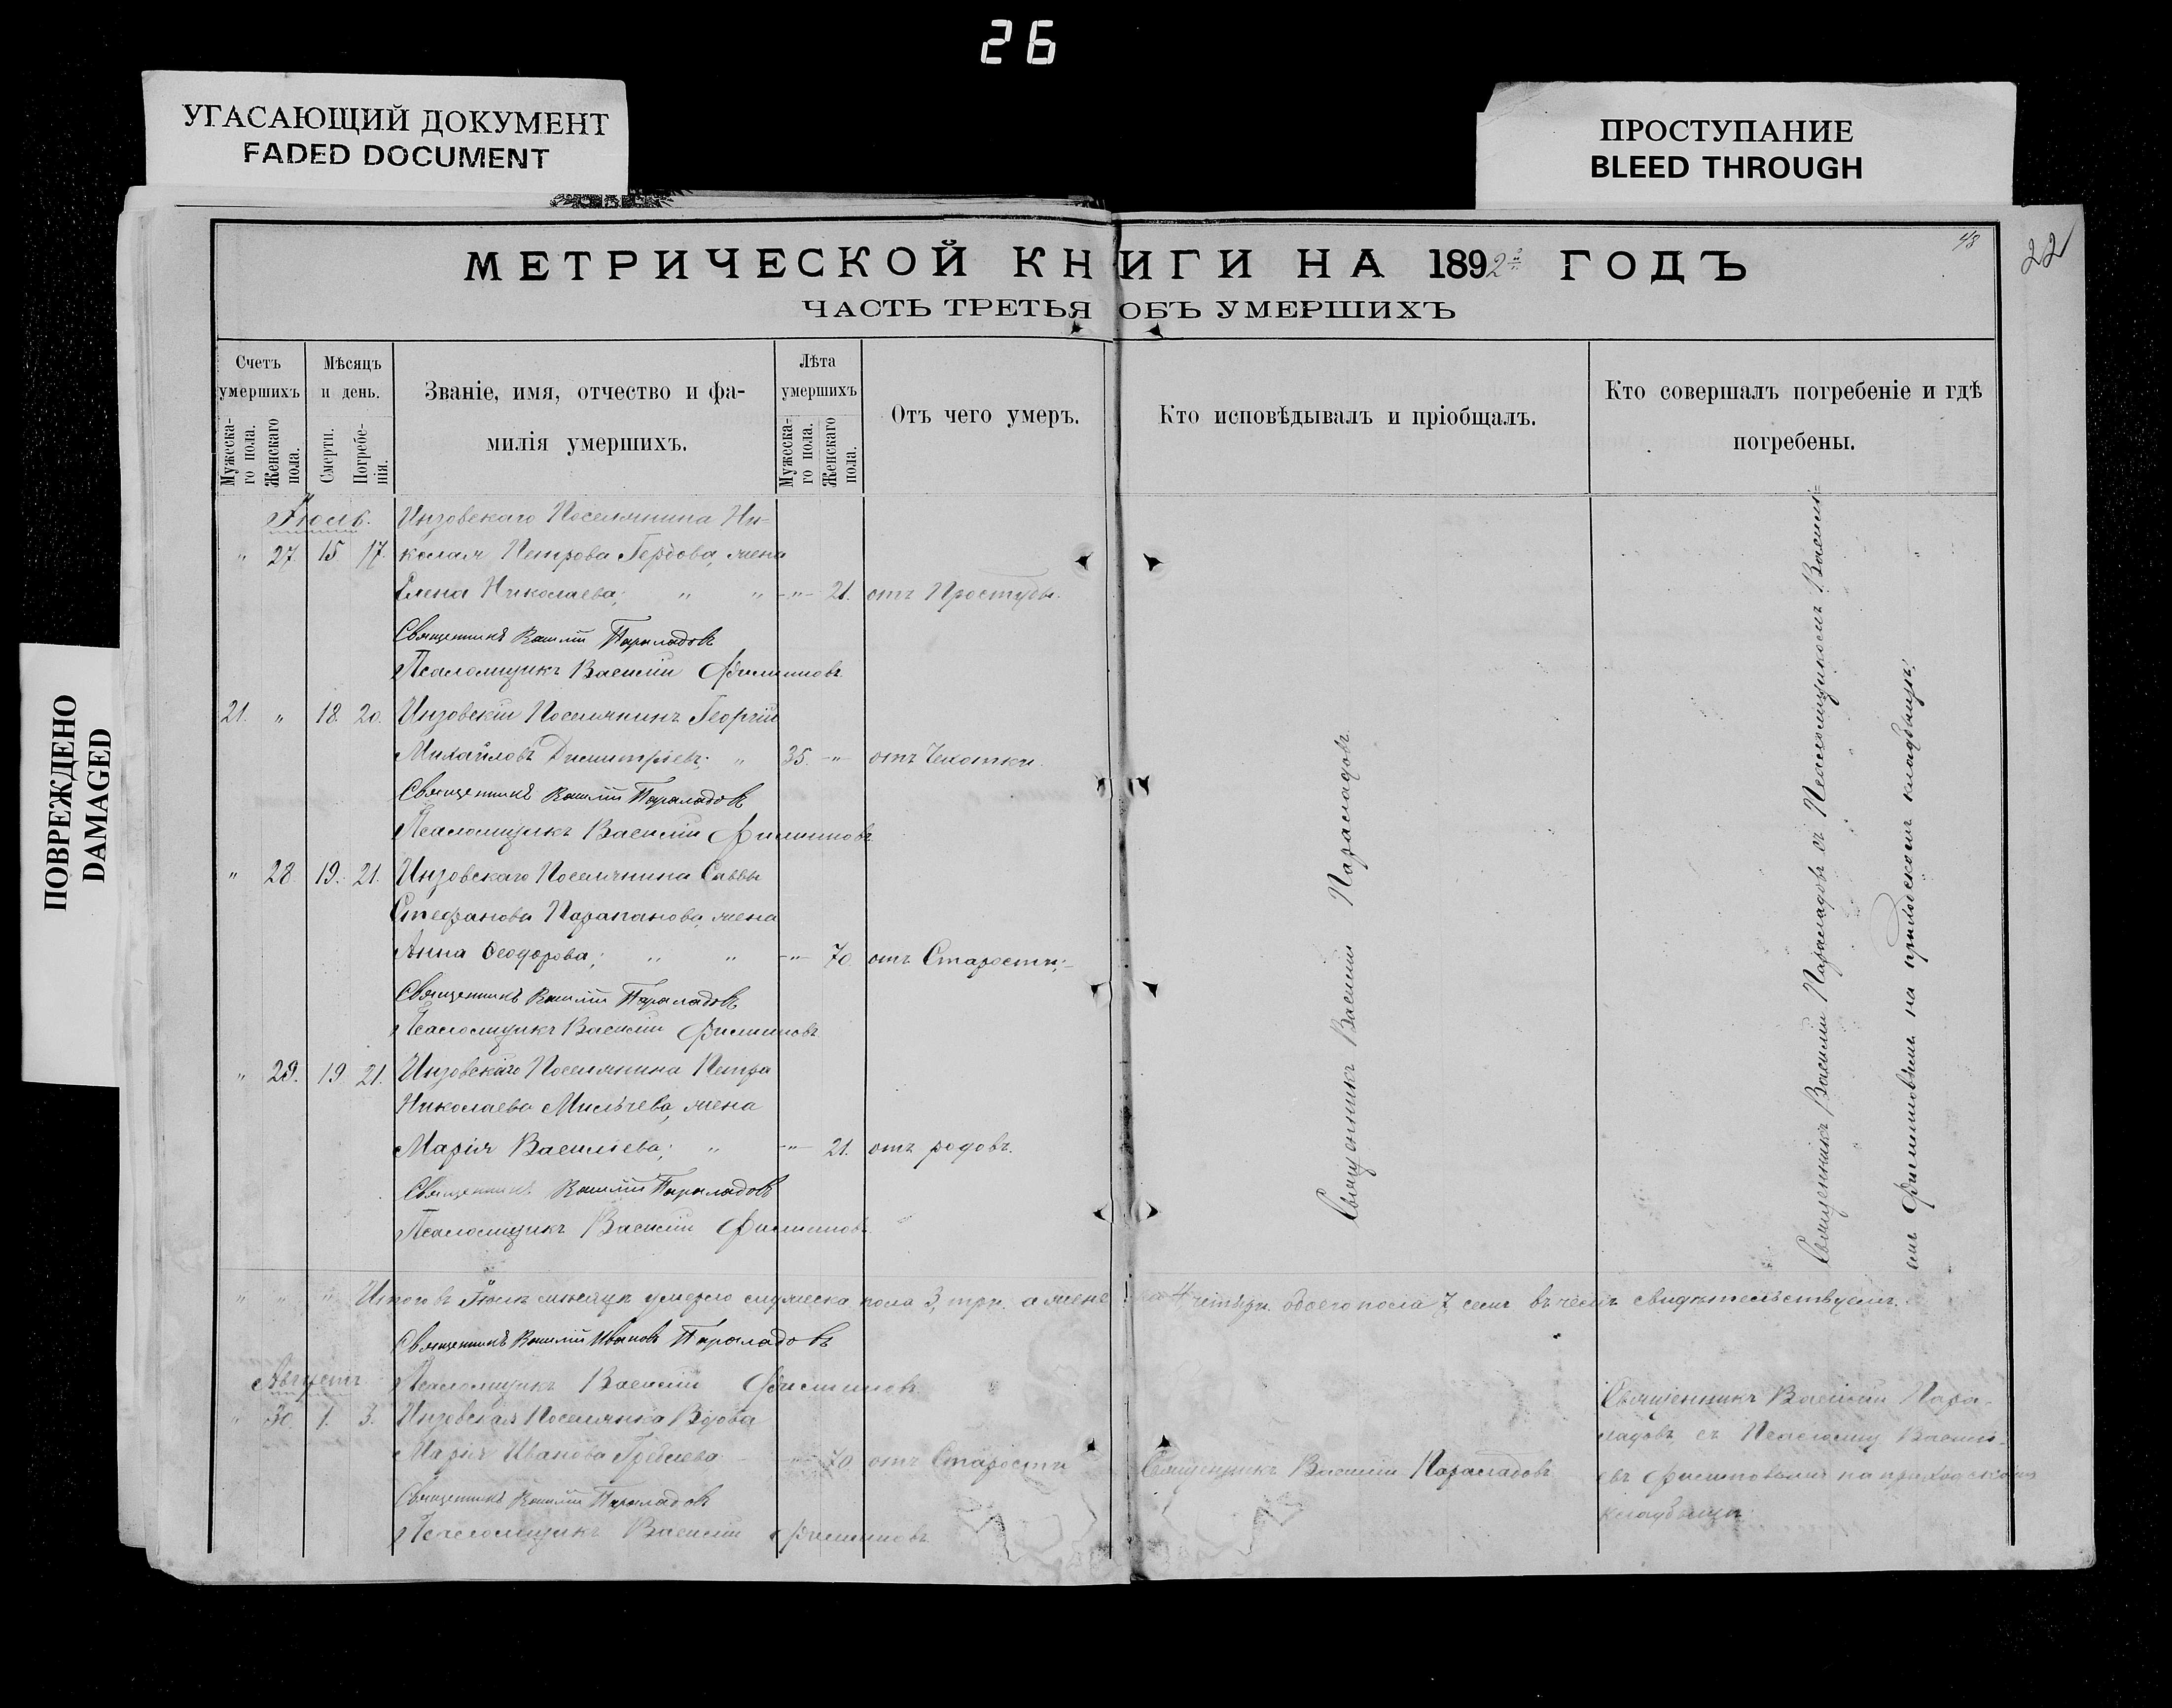 26
УГАСАЮЩИЙ ДОКУМЕНТ
FADED DOCUMENT
ПРОСТУПАНИЕ
BLEED THROUGH
ПОВРЕЖДЕНО
DAMAGED
48
22
МЕТРИЧЕСКОЙ КНИГИ НА 1892 ГОДЪ
ЧАСТЬ ТРЕТЬЯ ОБЪ УМЕРШИХЪ
Счетъ умершихъ
Мужеска-го пола.
Женскаго пола.
Мѣсяцъ и день.
Смерти.
Погребе-нія.
Званіе, имя, отчество и фа-
милія умершихъ.
Лѣта умершихъ
Мужеска-го пола.
Женскаго пола.
Отъ чего умеръ.
Кто исповѣдывалъ и пріобщалъ.
Кто совершалъ погребеніе и гдѣ
погребены.
Іюль. Инзовскаго Поселянина Ни=
" 27. 15 17. колая Петрова жена
Елена Николаева; " " -"- 21. отъ Простуды.
Священникъ Василій Параладовъ
Псаломщикъ Василій Филипповъ
21. " 18. 20. Инзовскій Поселянинъ Георгій
Михайловъ Димитріевъ; " 35. -"- отъ Чахотки.
Священникъ Василій Параладовъ
Псаломщикъ Василій Филипповъ
" 28. 19. 21. Инзовскаго Поселянина Саввы
Стефанова Парапанова, жена
Анна Ѳеодорова; " " -"- 70. отъ Старости;
Священникъ Василій Параладовъ
Псаломщикъ Василій Филипповъ
" 29. 19 21. Инзовскаго Поселянина Петра
Николаева Мильчева, жена
Марія Василіева; " -"- 21. отъ родовъ.
Священникъ Василій Параладовъ
Псаломщикъ Василій Филипповъ
Священникъ Василій Параладовъ
Священникъ Василій Параладовъ съ Псаломщикомъ Василі=
емъ Филипповымъ на приходскомъ кладбищѣ.
" " " Итого въ Іюлѣ мѣсяцѣ умерло мужеска пола 3, три. а женска 4 четыре. обоего пола 7, семь въ чемъ свидѣтельствуемъ.
Священникъ Василій Ивановъ Параладовъ
Августъ Псаломщикъ Василій Филипповъ
" 30. 1. 3. Инзовская Поселянка Вдова
Марія Иванова -"- 70 отъ Старости
Священникъ Василій Параладовъ
Псаломщикъ Василій Филипповъ
Священникъ Василій Параладовъ
Священникъ Василій Пара-
ладовъ съ Псаломщ Васил-
евъ Филиповымъ на приходскомъ
кладбищѣ